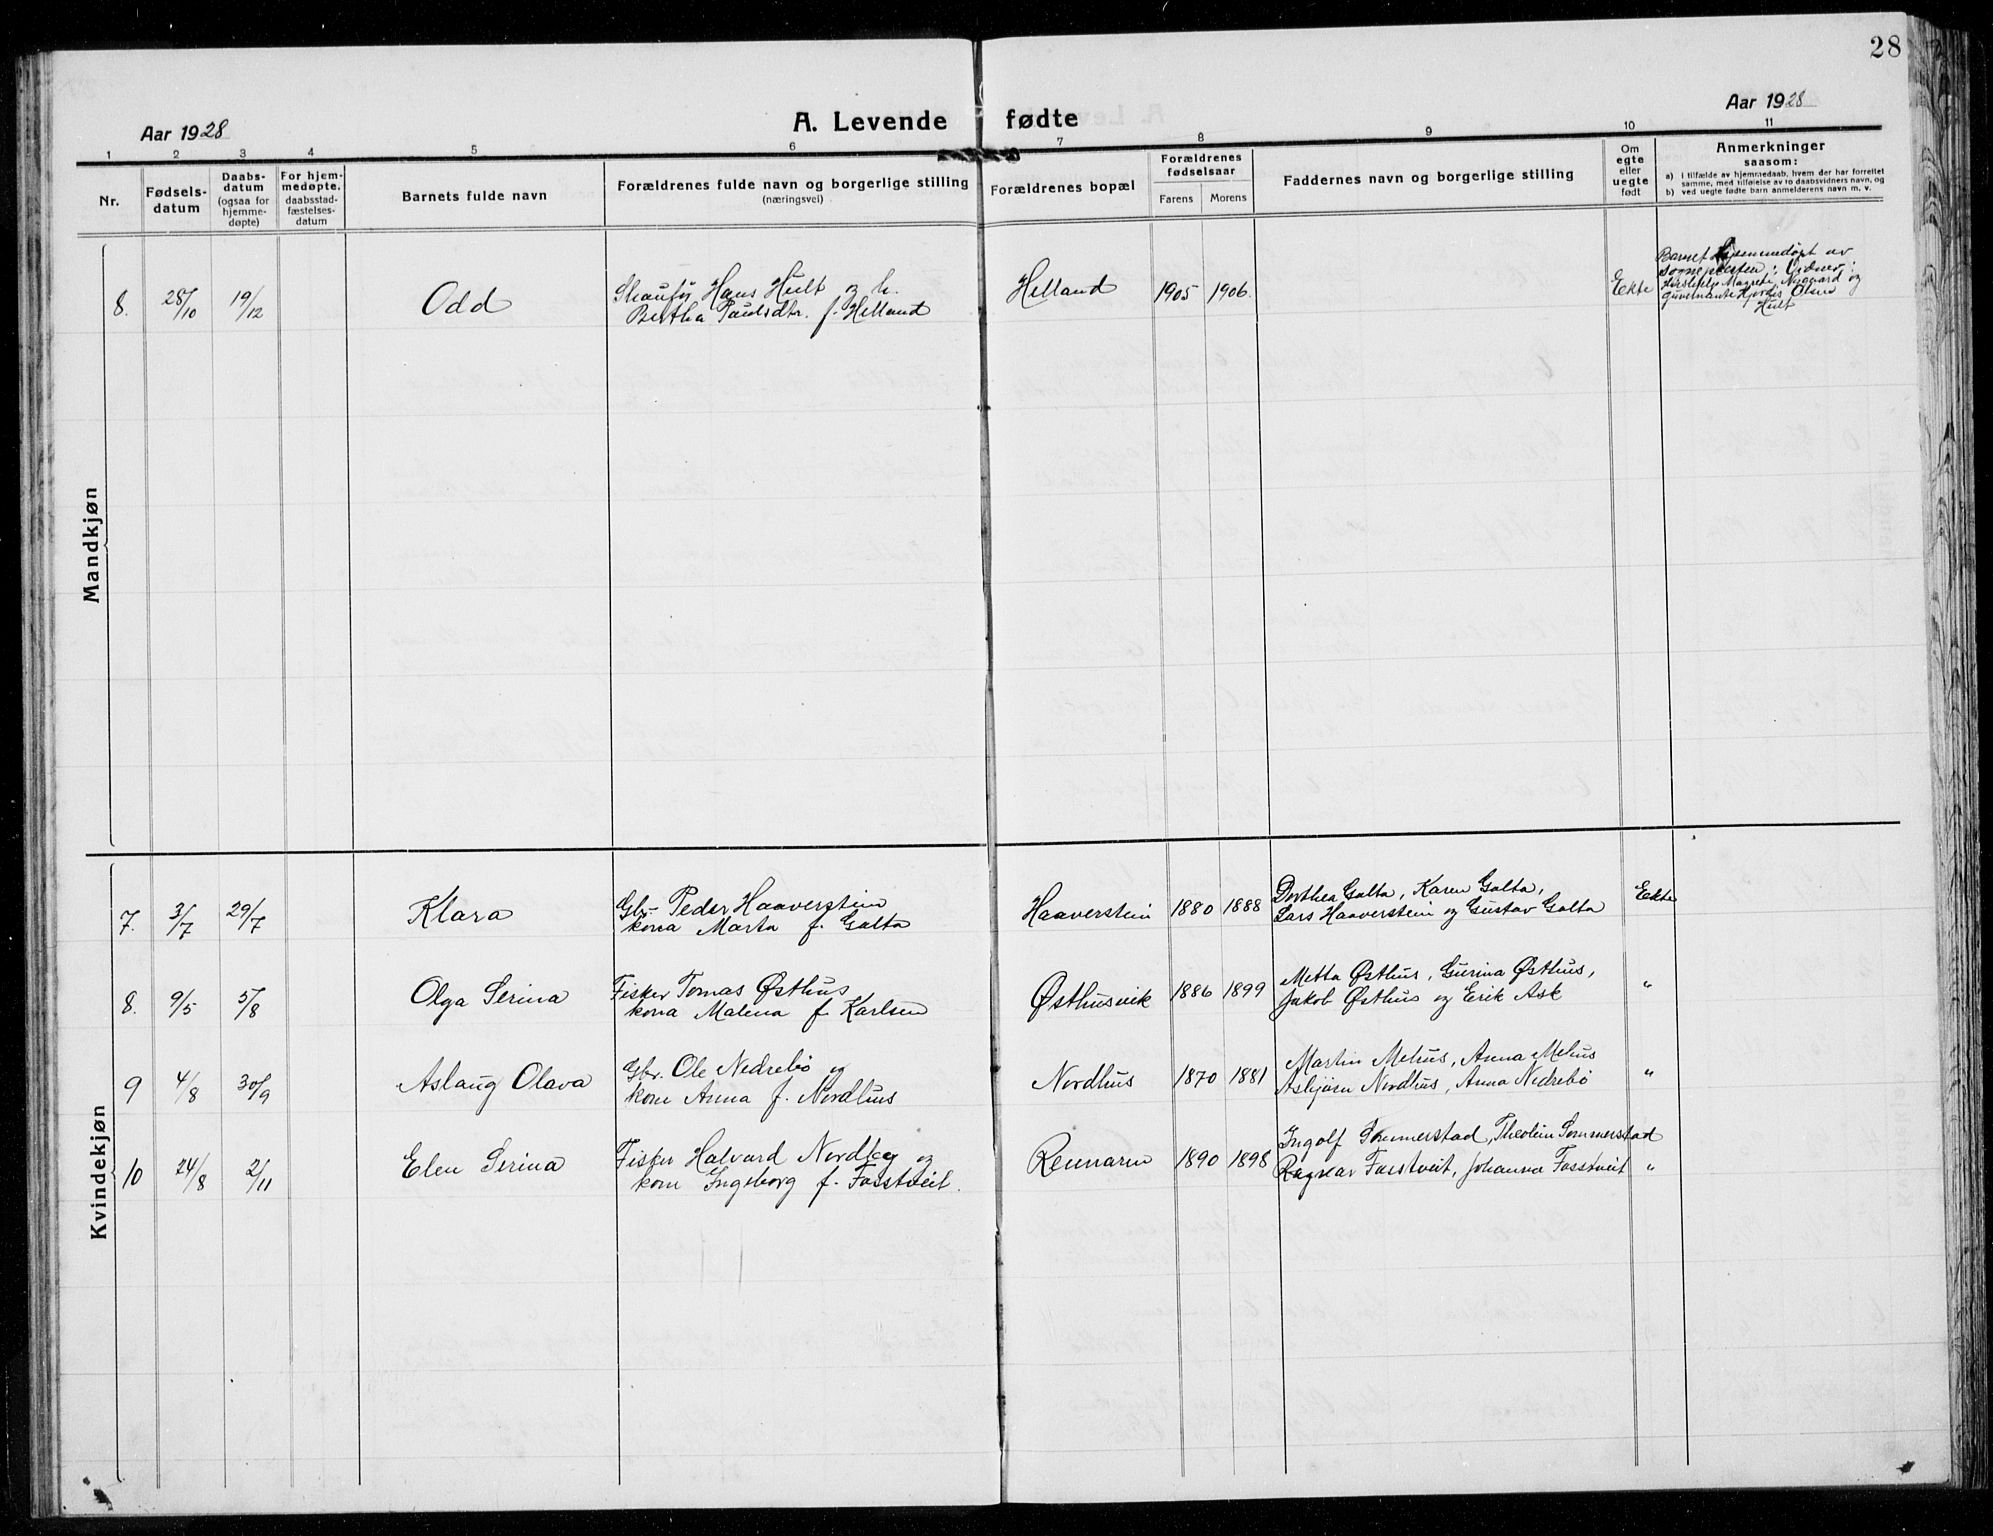 28
Aar 1928
A. Levende fødte
Aar 1928
1 2 3 4 5 6 7 8 9 10 11
Nr.
Fødsels-
datum
Daabs-
datum
(ogsaa for
hjemme-
døpte)
For hjem-
medøpte.
daabsstad-
fæstelses-
datum
Barnets fulde navn
Forældrenes fulde navn og borgerlige stilling
(næringsvei)
Forældrenes bopæl
Forældrenes
fødselsaar
Farens Morens
Faddernes navn og borgerlige stilling
Om
egte
eller
uegte
født
Anmerkninger
saasom:
a) i tilfælde av hjemmedaab, hvem der har forrettet
samme, med tilføielse av to daabsvidners navn, og
b) ved uegte fødte barn anmelderens navn m. v.
Mandkjøn
8. 28/10 19/12 Odd
Shaufør Hans Hult og h.
Bertha Paulsdtr. f. Helland
Helland 1905 1906. Ekte
Barnet hjemmedøpt av
sognepresten; Vidner:
Magrete Nygaard og
guvernante Hjørdis Olsen
Hult
Kvindekjøn
7. 3/7 29/7 Klara
Gbr. Peder Haaverstein
kona Marta f. Galta
Haaverstein 1880 1888
Dorthea Galta, Karen Galta,
Lars Haaverstein og Gustav Galta
Ekte
8. 9/5 5/8 Olga Serina
Fisker Tomas Østhus
kona Malena f. Karlsen
Østhusvik 1886 1899
Metta Østhus, Gurina Østhus,
Jakob Østhus og Erik Ask
"
9 4/8 30/9 Aslaug Olava
Gbr. Ole Nedrebø og
kone Anna f. Nordhus
Nordhus 1870 1881
Martin Mehus, Anna Mehus
Asbjørn Nordhus, Anna Nedrebø
"
10 24/8 2/11 Elen Serina
Fisker Halvard Nordbø og
kone Ingeborg f. Fosstveit.
Rennaren 1890 1898
Ingolf Sømmerstad, Theolin Sømmerstad
Ragnar Fosstveit, Johanna Fosstveit
"